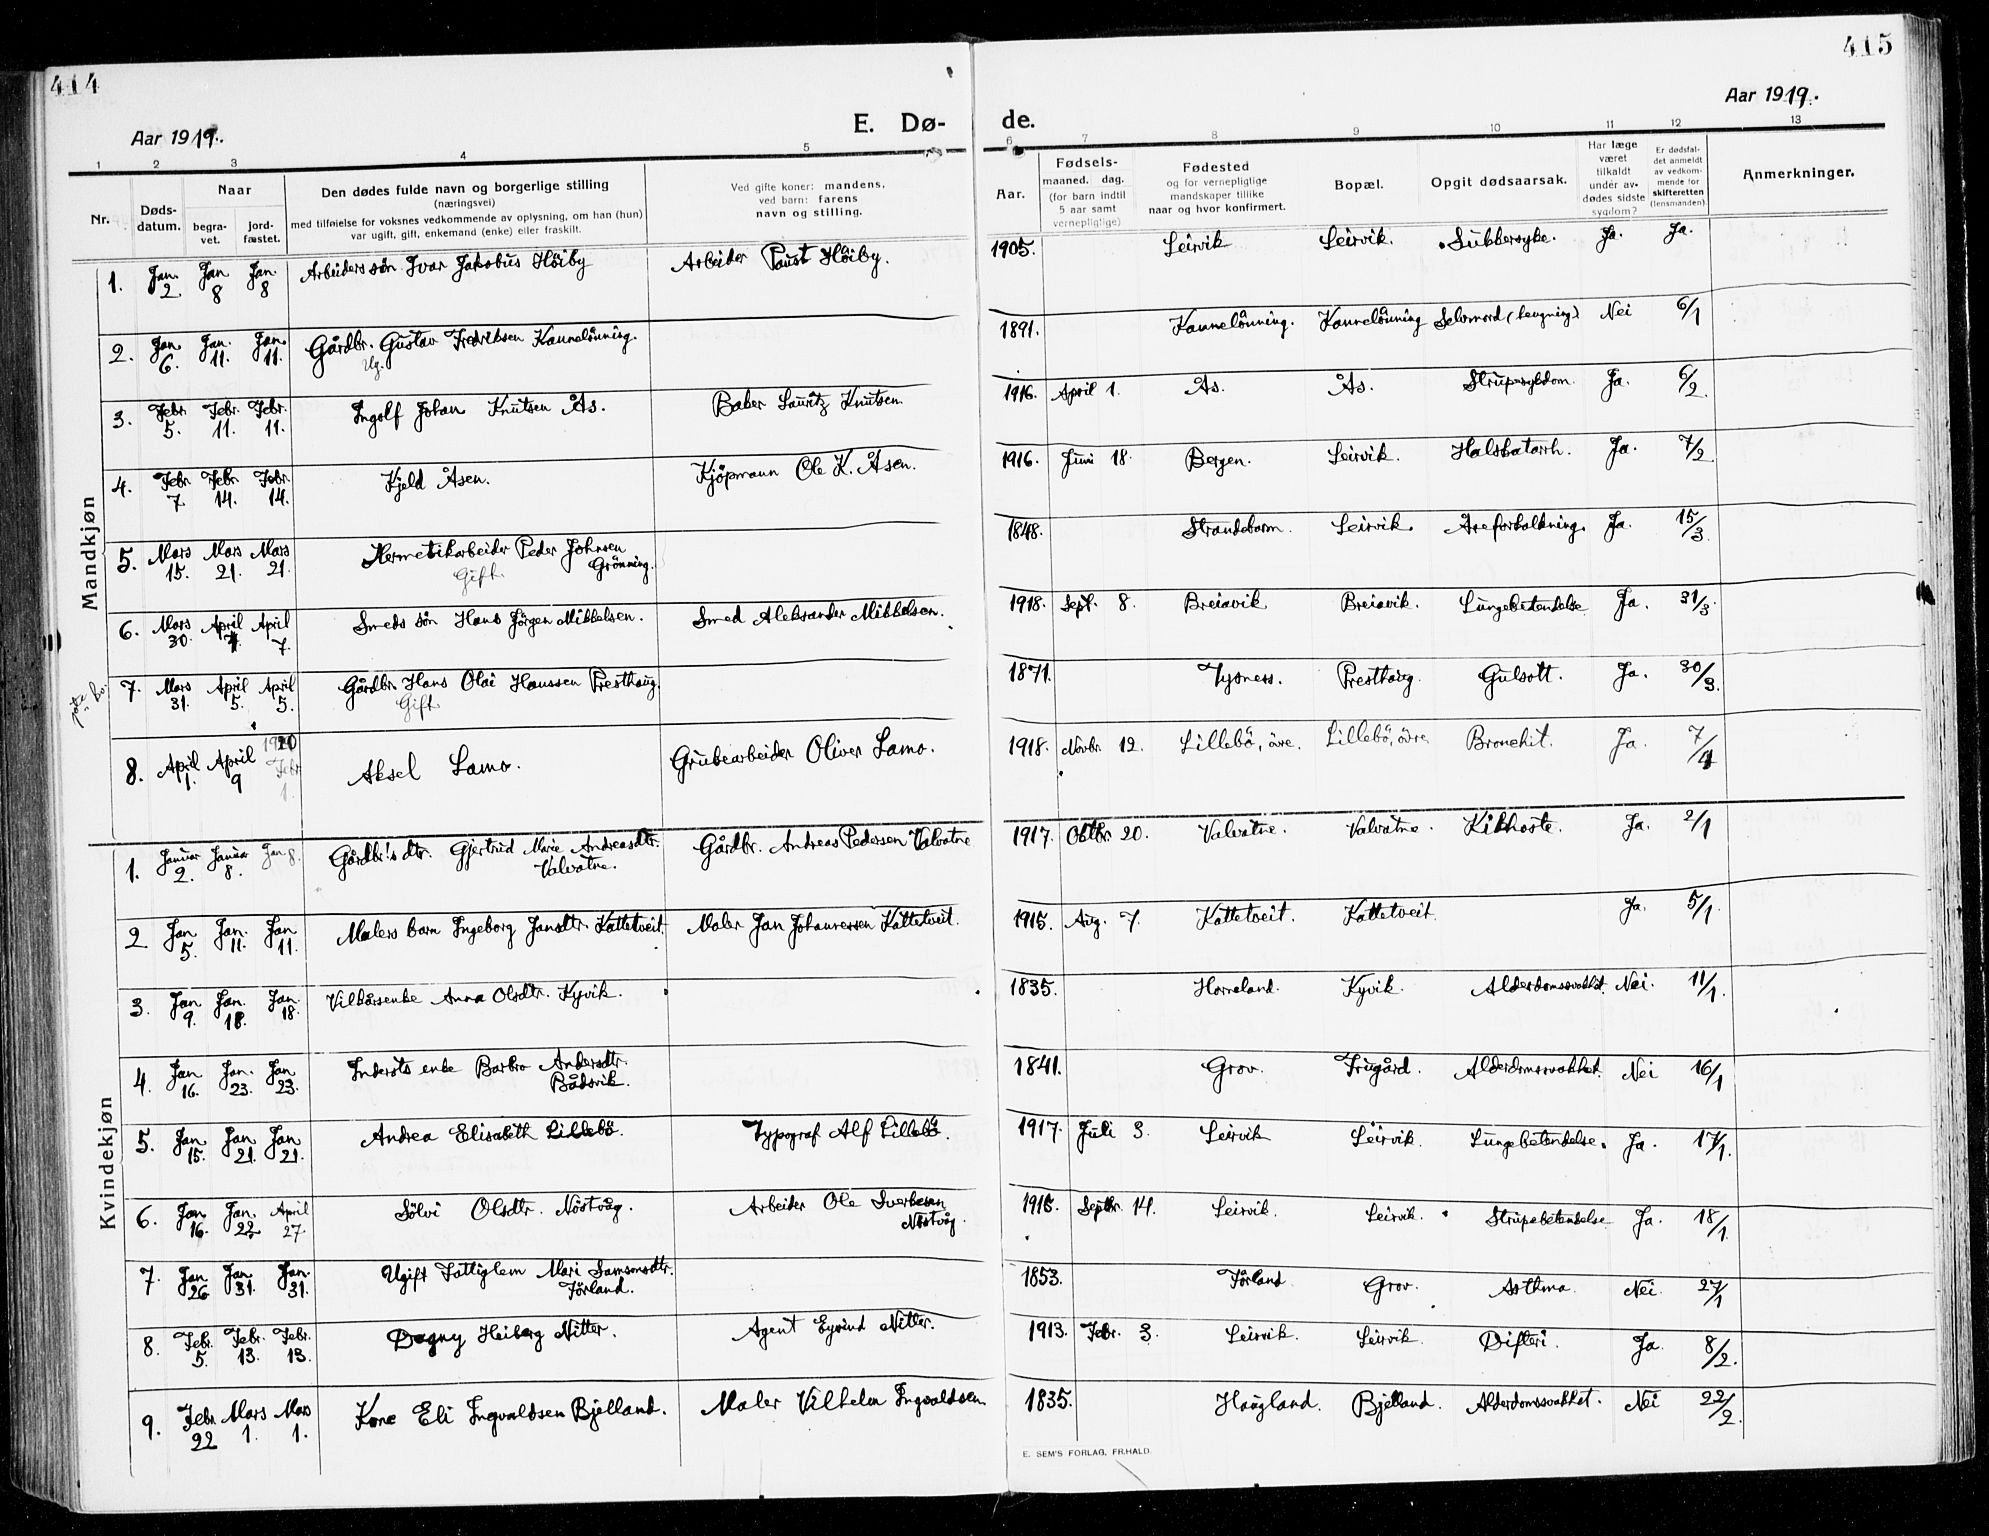 414
415
Aar 1919.
E. Dø-
de.
Aar 1919.
1 2 3 4 5 6 7 8 9 10 11 12 13
Nr.
Døds-
datum.
Naar
begra-
vet.
jord-
fæstet.
Den dødes fulde navn og borgerlige stilling
(næringsvei)
med tilføielse for voksnes vedkommende av oplysning, om han (hun)
var ugift, gift, enkemand (enke) eller fraskilt.
Ved gifte koner: mandens,
ved barn: farens
navn og stilling.
Aar.
Fødsels-
maaned. dag.
(for barn indtil
5 aar samt
vernepligtige)
Fødested
og for vernepligtige
mandskaper tillike
naar og hvor konfirmert.
Bopæl.
Opgit dødsaarsak.
Har læge
været
tilkaldt
under av-
dødes sidste
sygdom?
Er dødsfal-
det anmeldt
av vedkom-
mende for
skifteretten
(lensmanden).
Anmerkninger.
Mandkjøn
1. Jan. 2. Jan 8 Jan. 8 Arbeiders søn Ivar Jakobus Höiby Arbeider Paust Höiby. 1905. Leirvik Leirvik. Sukkersyke. Ja. Ja.
2. Jan. 6. Jan. 11. Jan. 11. Gårdbr. Gustav Fredriksen Kannelönning. Ug. 1891. Kannelönning. Kannelönning Selvmord (hengning) Nei 6/1
3. Febr. 5. Febr. 11. Febr. 11. Ingolf Johan Knutsen Ås. Baker Lauritz Knutsen. 1916. April 1. Ås. Ås. Strupesykdom. Ja. 6/2.
4. Febr 7 Febr 14. Febr. 14. Kjeld Åsen. Kjöpmann Ole K. Åsen. 1916. Juni 18. Bergen. Leirvik. Halskatarrh. Ja. 7/2
5. Mars 15. Mars 21. Mars 21. Hermetikarbeider Peder Johnsen Grönning. Gift. 1848. Strandebarm. Leirvik. Åreforkalkning. Ja. 15/3.
6. Mars 30. April 7. April 7. Smeds søn Hans Jörgen Mikkelsen. Smed Aleksander Mikkelsen. 1918. Sept. 8. Breiavik Breiavik. Lungebetendelse Ja. 31/3.
7. Mars 31. April 5. April 5. Gårdbr. Hans Olai Hanssen Presthaug. Gift. 1871. Tysnes. Presthaug. Gulsott. Ja. 30/3.
8. April 1. April 9 1920 Febr. 1. Aksel Lamo. Grubearbeider Oliver Lamo. 1918. Novbr. 12. Lillebö, övre. Lillebö, övre Bronchit. Ja. 7/4
Kvindekjøn
1. Januar 2. Januar 8. Jan. 8. Gårdbr.'s dtr. Gjertrud Marie Andreasdtr. Valvatne. Gårdbr. Andreas Pedersen Valvatne 1917. Oktbr. 20. Valvatne. Valvatne. Kikhoste. Ja. 2/1
2 Jan 5. Jan. 11. Jan 11. Malers barn Ingeborg Jansdtr. Kattetveit. Maler Jan Johannessen Kattetveit. 1915. Aug. 7. Kattetveit. Kattetveit. Ja. 5/1.
3. Jan 9. Jan. 18. Jan. 18. Vilkårsenke Anna Olsdtr. Kyvik. 1835. Horneland. Kyvik. Alderdomssvakhet. Nei. 11/1.
4. Jan 16. Jan. 23. Jan 23. Inderots enke Barbro Andersdtr. Bådsvik. 1841. Grov. Frugård. Alderdomssvakhet. Nei 16/1
5. Jan 15. Jan 21. Jan 21. Andrea Elisabeth Lillebö. Typograf Alf Lillebö. 1917. Juli 3. Leirvik Leirvik. Lungebetendelse. Ja. 17/1.
6. Jan. 16. Jan. 22 April 27. Sölvi Olsdtr. Nöstvåg. Arbeider Ole Sverkesen Nöstvåg. 1915. Septbr. 14. Leirvik. Leirvik. Strupebetendelse Ja. 18/1.
7. Jan 26 Jan 31. Jan. 31. Ugift Fattiglem Mari Samsonsdtr. Förland. 1853. Förland. Grov. Asthma. Nei. 27/1
8. Febr. 5. Febr. 13. Febr. 13. Dagny Heiberg Nitter. Agent Eyvind Nitter. 1913. Febr. 3. Leirvik. Leirvik. Difteri. Ja. 8/2.
9. Febr 22 Mars 1. Mars 1. Kone Eli Ingvaldsen Bjelland. Maler Vilhelm Ingvaldsen. 1835. Haugland. Bjelland. Alderdomssvakhet. Nei 22/2.
E. SEM'S FORLAG, FR.HALD.